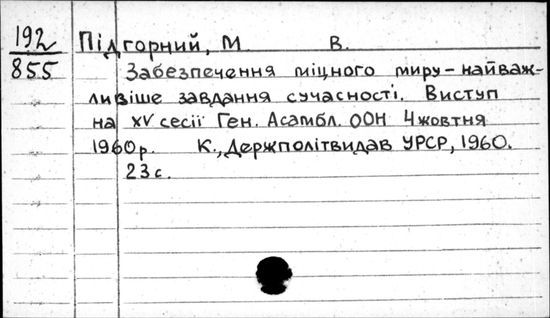 192
855
Підгорний, М. В.
Забезпечення міцного миру - найваж-
ливіше завдання сучасності. Виступ
на XV сесії Ген. Асамбл. ООН 4 жовтня
1960 р. К., Держполітвидав УРСР, 1960.
23 с.